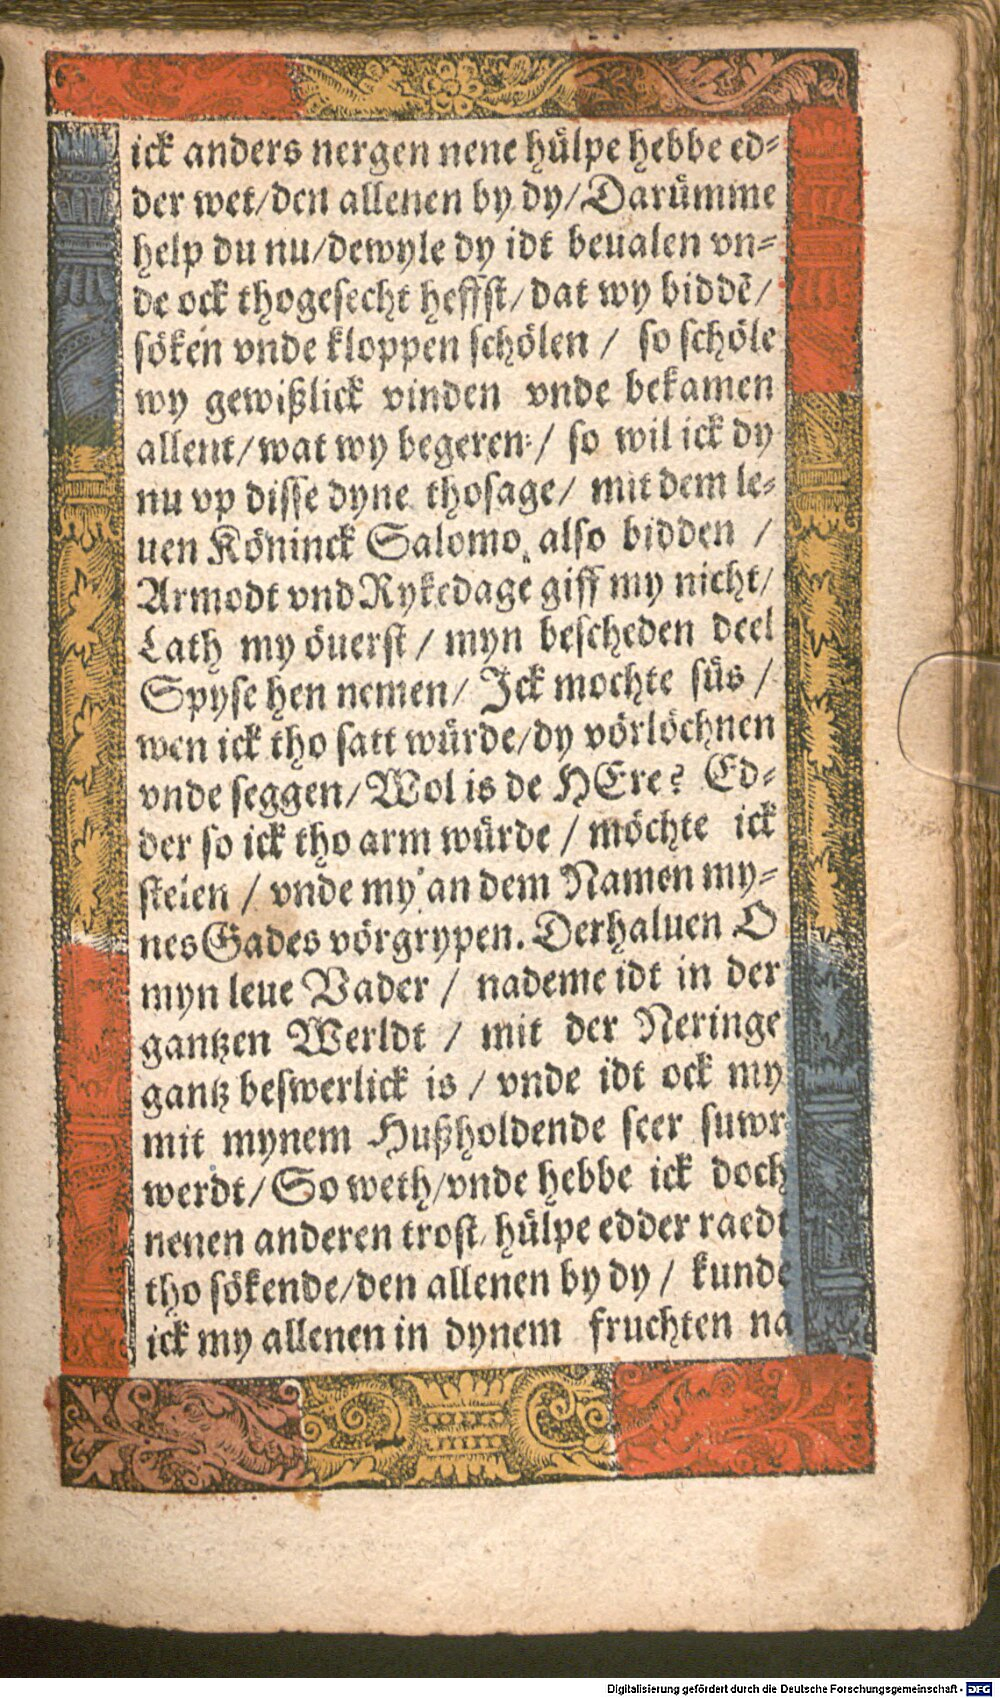 ick anders nergen nene hülpe hebbe ed⸗
der wet/den allenen by dy/Darümme
help du nu/dewyle dy idt beualen vn⸗
de ock thogesecht heffst/dat wy biddē/
söken vnde kloppen schölen / so schöle
wy gewißlick vinden vnde bekamen
allent/wat wy begeren:/ so wil ick dy
nu vp disse dyne thosage/ mit dem le⸗
uen Köninck Salomo, also bidden /
Armodt vnd Rykedage giff my nicht/
Lath my öuerst/ myn bescheden deel
Spyse hen nemen/ Ick mochte süs /
wen ick tho satt würde/dy vörlöchnen
vnde seggen/Wol is de HEre? Ed⸗
der so ick tho arm würde / möchte ick
stelen / vnde my an dem Namen my⸗
nes Gades vörgrypen. Derhaluen O
myn leue Vader / nademe idt in der
gantzen Werldt / mit der Neringe
gantz beswerlick is / vnde idt ock my
mit mynem Hußholdende seer suwr
werdt/So weth/vnde hebbe ick doch
nenen anderen trost/hülpe edder raedt
tho sökende/den allenen by dy / kunde
ick my allenen in dynem fruchten na
Digitalisierung gefördert durch die Deutsche Forschungsgemeinschaft - DFG